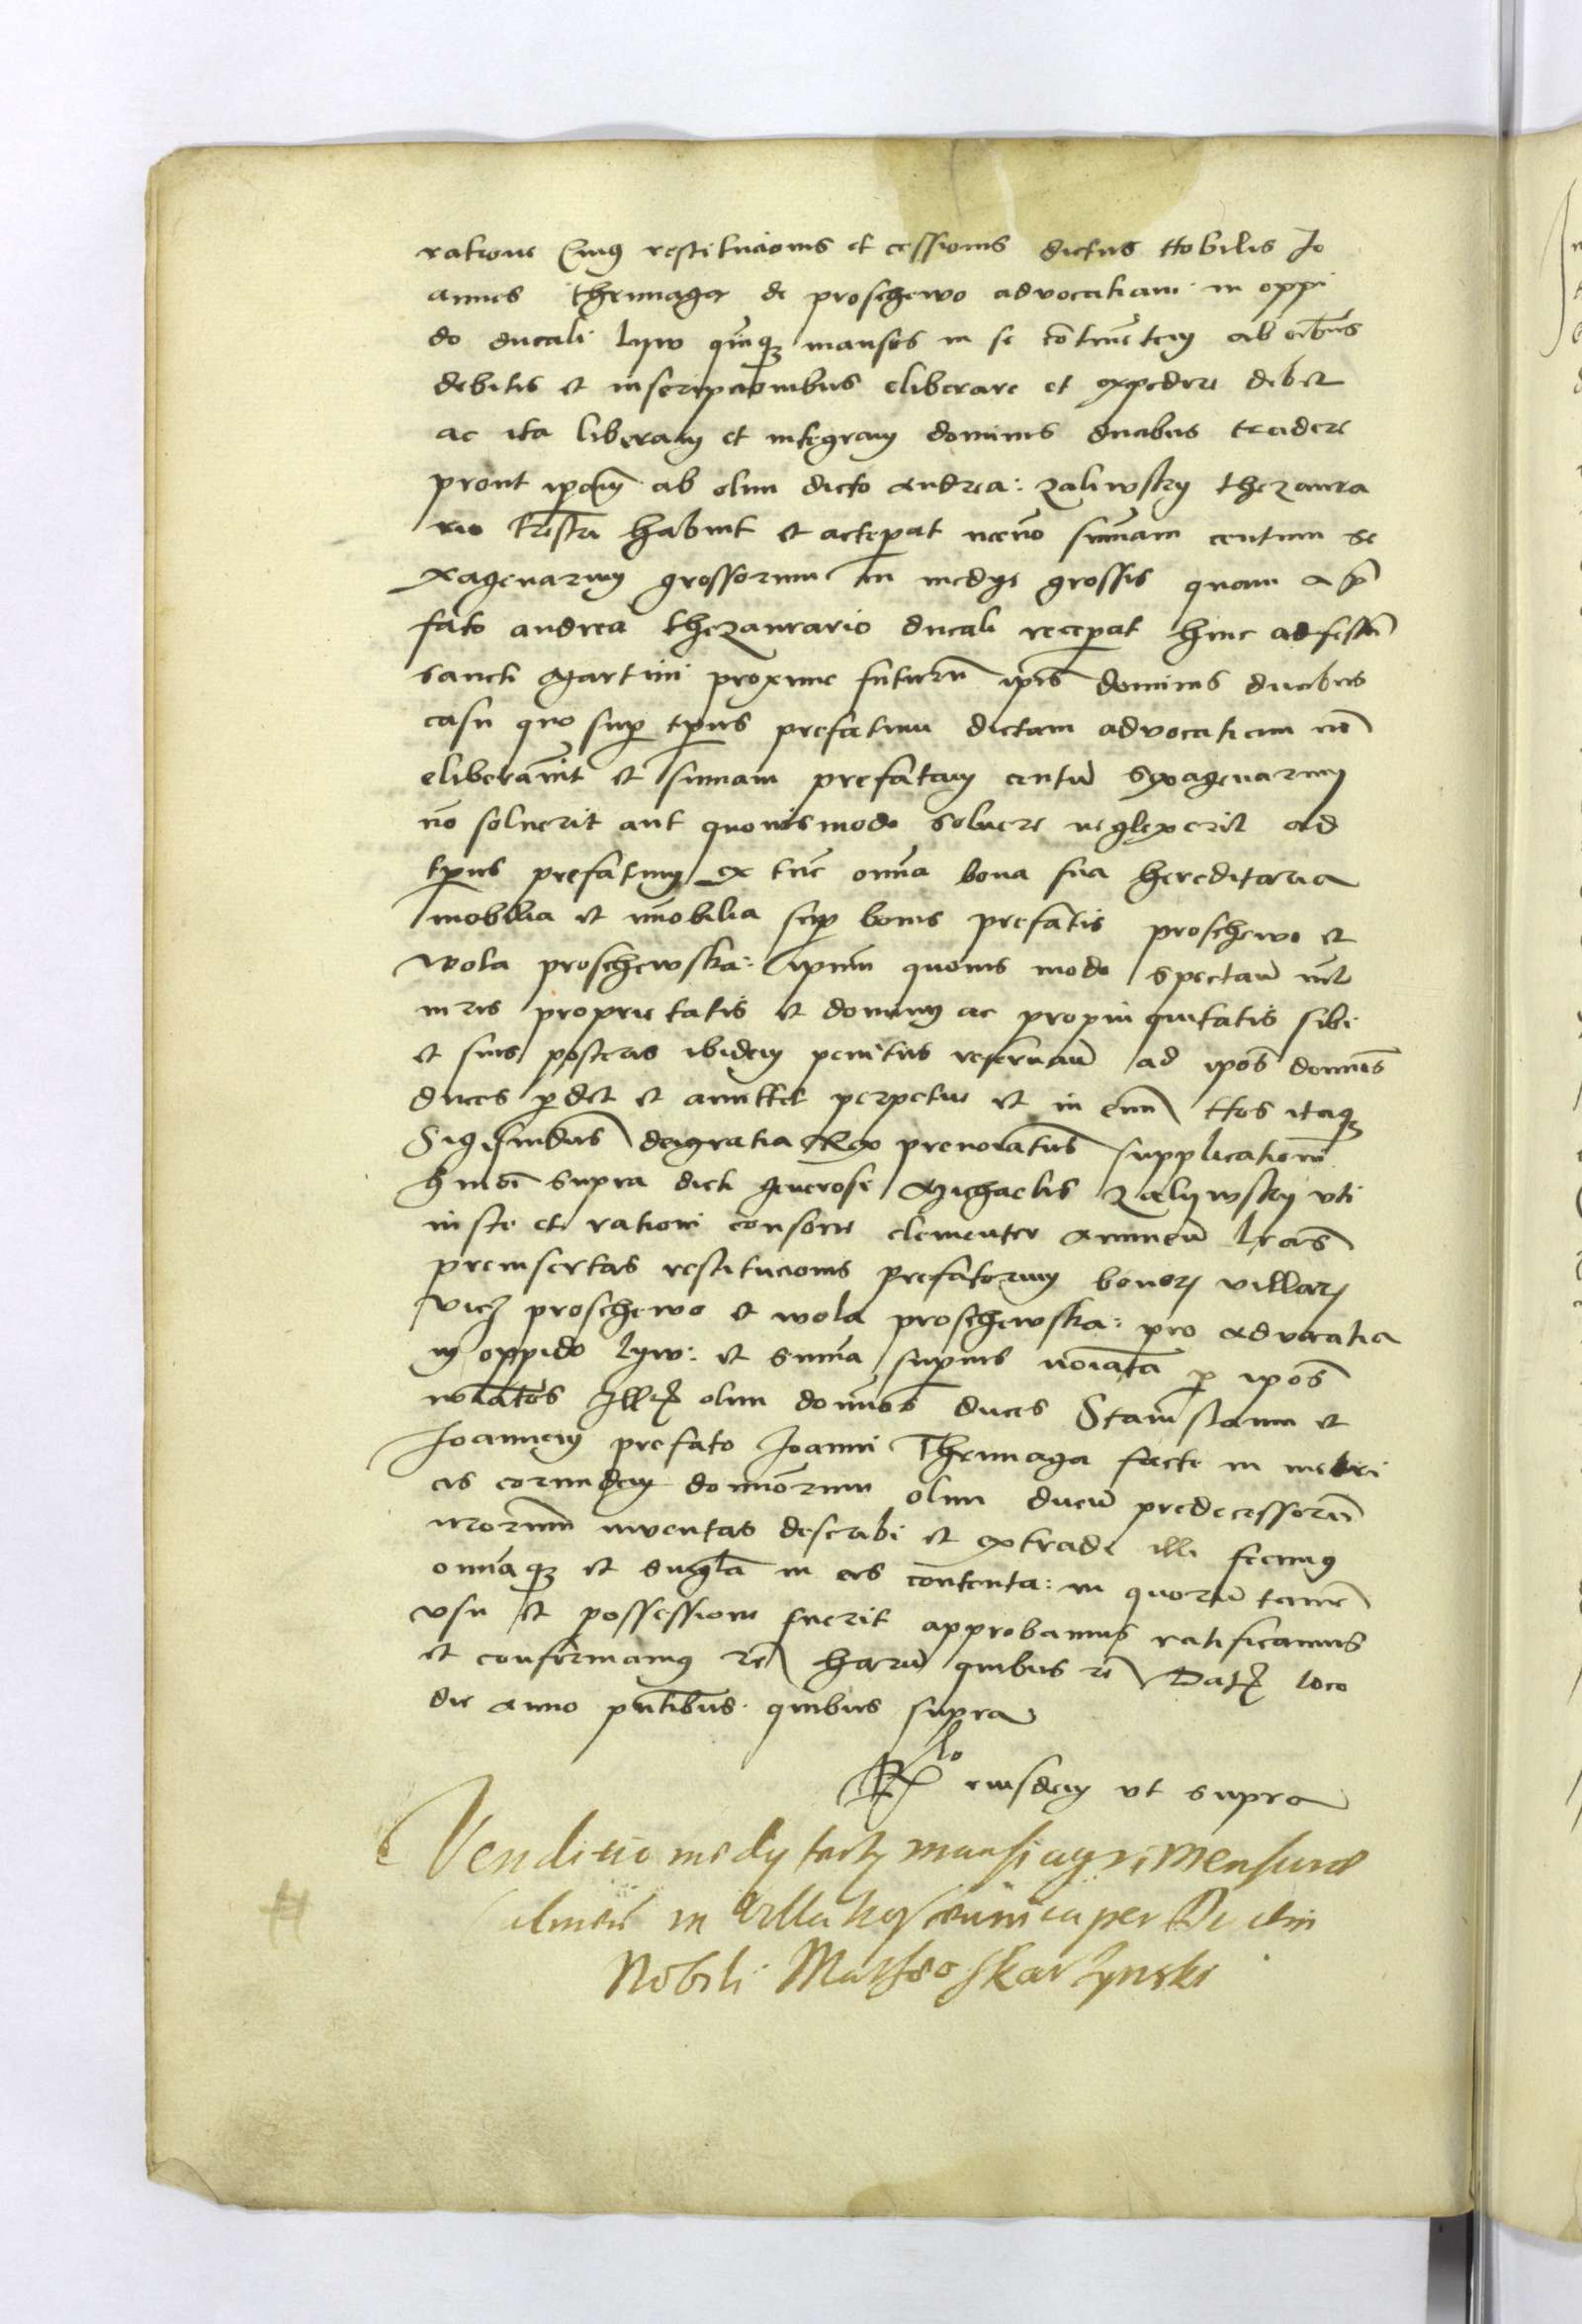 ratione Cuius restitucionis et cessionis dictus Nobilis Jo
annes thrnnaga de proschewo advocatiam in oppi
do ducali lyw quinq mansos in se cōtinētem ab oībus
debitis et inscripcionibus eliberare et expedire debet
ac ita liberam et integram dominis ducibus tradere
prout ipam ab olim dicto Andrea: zaliwsky thezaura
rio habuit et acceperat necnō sūmam centum se
xagenarum grossorum in medys grossis quam a p̄
fato andrea thezaurario ducali receperat hinc ad festū
sancti Martini proxime futurū ipīs dominis ducibus
casu quo sup tpus prefatum dictam advocatiam nō
eliberauerit et sūmam prefatam centū sexagenarum
nō soluerit aut quouismodo soluere neglexerit ad
tpus prefatum ex tūc omīa bona sua hereditaria
mobilia et īmobilia sup bonis prefatis proschewo et
wola proschewska: ipm quouis modo spectañ nil
iuris proprietatis et dominy ac propinquitatis sibi
et suis posteris ibidem penitus reseruañ ad ipōs domīos
duces pdet et amittet perpetue et in euū Nos itaq
Sigismūdus dei gratia Rex prenoīatus supplicationi
hmōi supra dicti generosi Michaelis Zalywsky vti
iuste et rationi consone clementer annueñ lrās
preinsertas restitucionis prefatorum bonorꝫ villarꝫ
vicꝫ proschewo et wola proschewska: pro advocatia
in oppido lyw: et sūma superius noīata p ipōs
noīatos Illꝫ olim domīos duces Stanislaum et
Joannem prefato Joanni Thrnnaga facte in metri
cis eorundem domīorum olim ducū predecessorū
nrorum inventas describi et extradi illi fecimus
omīaq et singla in eis contenta: in quorū tamē
vsu et possessione fuerit approbamus ratificamus
et confirmamus rē harū quibus rē Datꝫ loco
die anno pntibus quibus supra
Rlo eiusdem vt supra
Venditio medy mansi agri mensurae
in villa per Ducem
Nobili Matheo Skarzynski